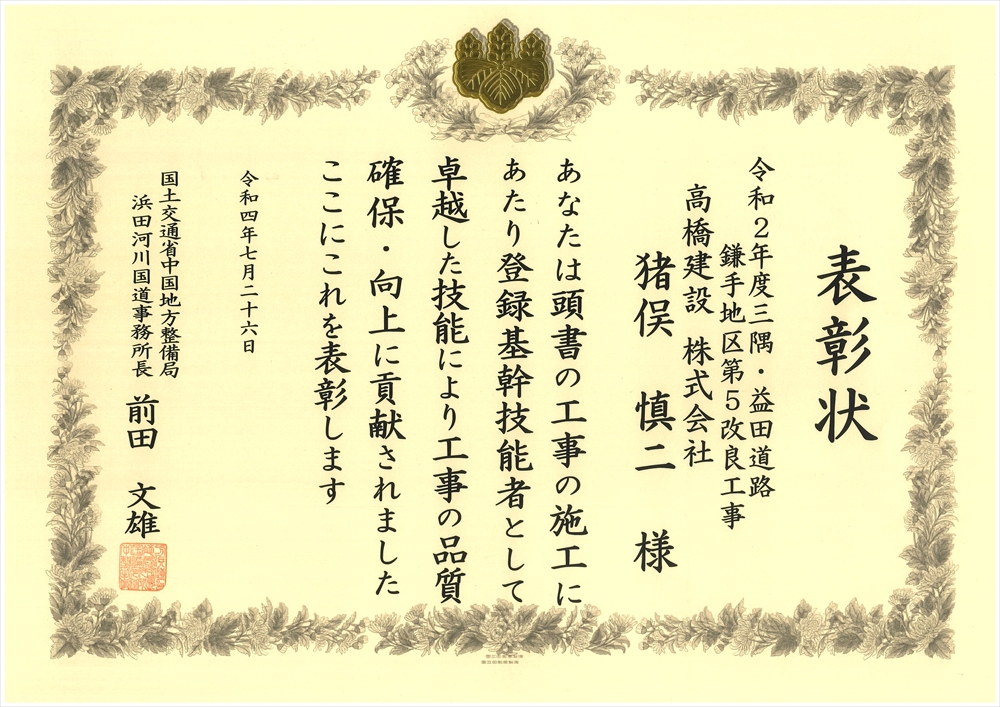 表彰状
令和２年度三隅・益田道路
鎌手地区第５改良工事
高橋建設 株式会社
猪俣 慎二 様
あなたは頭書の工事の施工に
あたり登録基幹技能者として
卓越した技能により工事の品質
確保・向上に貢献されました
ここにこれを表彰します
令和四年七月二十六日
国土交通省中国地方整備局
浜田河川国道事務所長 前田 文雄